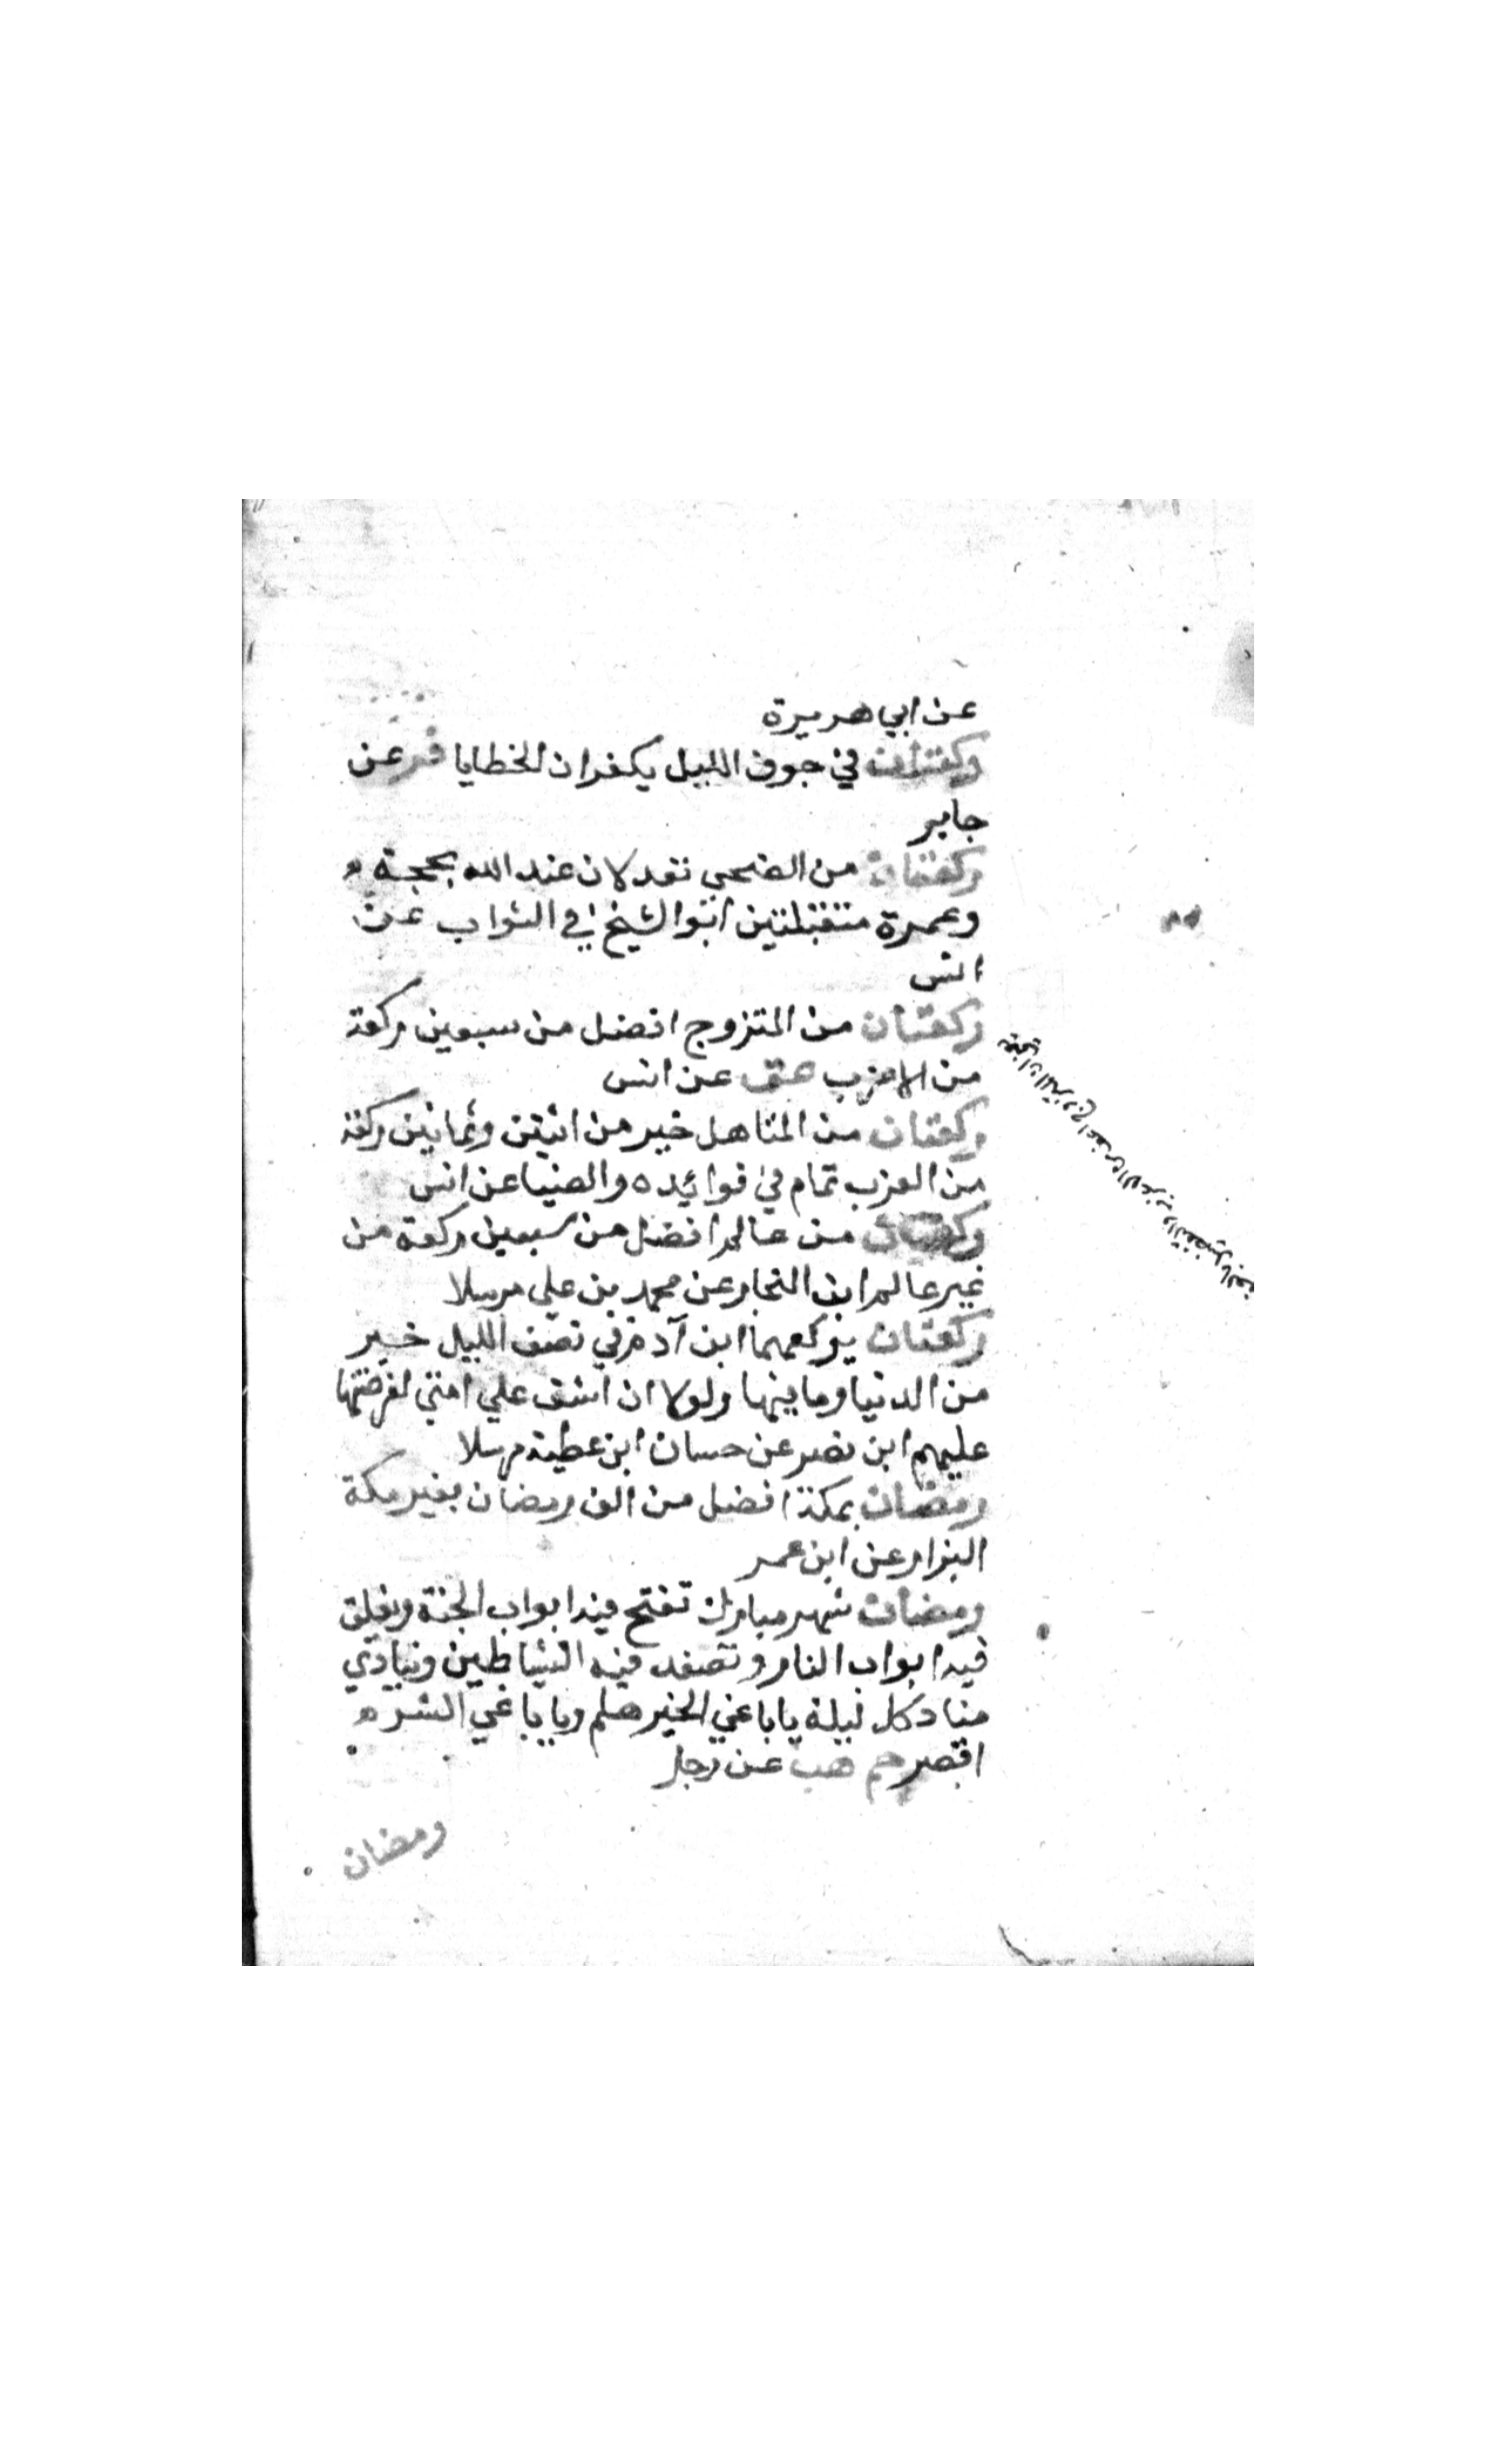 عن ابي هريرة
ركعتان في جوف الليل يكفران الخطايا فر عن
جابر
ركعتان من الضحي تعدلان عند الله بحجة
وعمرة متقبلتين ابو الشيخ في الثواب عن
انس
ركعتان من المتزوج افضل من سبعين ركعة
من الاعزب عق عن انس
ركعتان من المتاهل خير من اثنتين وثمانين ركعة
من العزب تمام في فوائده والضيا عن انس
ركعتان من عالم افضل من سبعين ركعة من
غير عالم ابن النجار عن محمد بن علي مرسلا
ركعتان يركعهما ابن آدم في نصف الليل خير
من الدنيا وما فيها ولولا ان اشق علي امتي لفرضتها
عليهم ابن نصر عن حسان ابن عطية مرسلا
رمضان بمكة افضل من الف رمضان بغير مكة
البزار عن ابن عمر
رمضان شهر مبارك تفتح فيه ابواب الجنة وتغلق
فيه ابواب النار وتصفد فيه الشياطين وينادي
مناد كل ليلة يا باغي الخير هلم ويا باغي الشر
اقصر حم هب عن رجل
رمضان